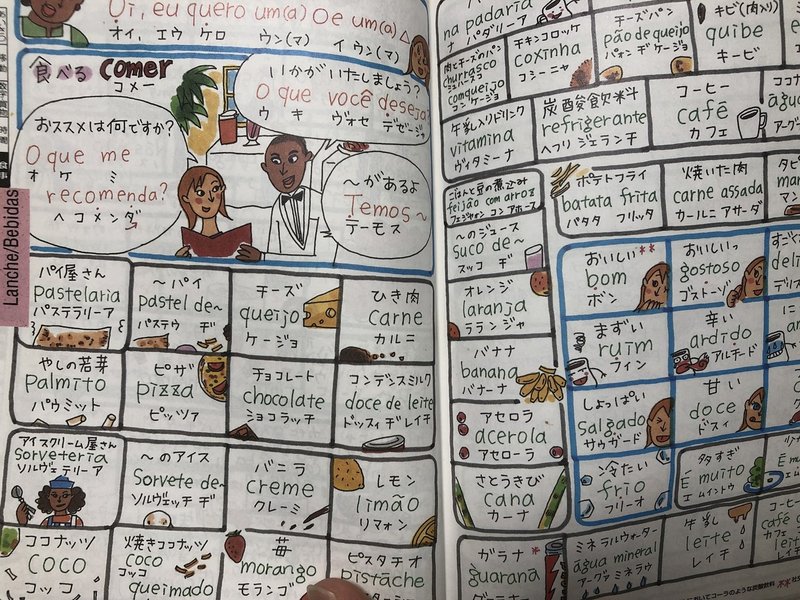 Oi, eu quero um(a) ○ e um(a) △
オィ, エウ ケロ ウン(マ) イ ウン(マ)
食べる comer
コメー
いかがいたしましょう?
O que você deseja?
ウ キ ヴォセ デゼージャ
おススメは何ですか?
O que me
オ ケ ミ
recomenda?
ヘコメンダ
～があるよ
Temos～
テーモス
Lanche/Bebidas
パイ屋さん
pastelaria
パステラリーア
～パイ
pastel de～
パステウ ヂ
チーズ
queijo
ケージョ
ひき肉
carne
カルニ
やしの若芽
palmito
パウミット
ピザ
pizza
ピッツァ
チョコレート
chocolate
ショコラッチ
コンデンスミルク
doce de leite
ドッスィ ヂ レイチ
アイスクリーム屋さん
sorveteria
ソルヴェテリーア
～のアイス
Sorvete de～
ソルヴェッチ ヂ
バニラ
creme
クレーミ
レモン
limão
リマォン
ココナッツ
coco
コッコ
焼きココナッツ
coco
コッコ
queimado
苺
morango
モランゴ
ピスタチオ
pistache
na padaria
ナ パダリーア
肉とチーズのパン
churrasco
シュハースコ
com queijo
コン ケージョ
チキンコロッケ
coxinha
コシーニャ
チーズパン
pão de queijo
パォン ヂ ケージョ
キビ(肉入り)
quibe
キービ
牛乳入りドリンク
vitamina
ヴィタミーナ
炭酸飲料
refrigerante
ヘフリジェランチ
コーヒー
café
カフェ
água
アーグァ
ごはんと豆の煮込み
feijão com arroz
フェジャォン コン アホース
ポテトフライ
batata frita
バタタ フリッタ
焼いた肉
carne assada
カールニ アサーダ
～のジュース
suco de～
スッコ ヂ
オレンジ
laranja
ラランジャ
バナナ
banana
バナーナ
アセロラ
acerola
アセローラ
さとうきび
cana
カーナ
ガラナ*
guaraná
おいしい**
bom
ボン
おいしいっ
gostoso
ゴストーゾ
まずい
ruim
フイン
辛い
ardido
アルチード
しょっぱい
salgado
サウガード
甘い
doce
ドスィ
冷たい
frio
フリーオ
多すぎ
É muito
エ ムイントゥ
ミネラルウォーター
água mineral
アーグァ ミネラウ
牛乳
leite
レイチ
コーヒー
café
カフェ
leite